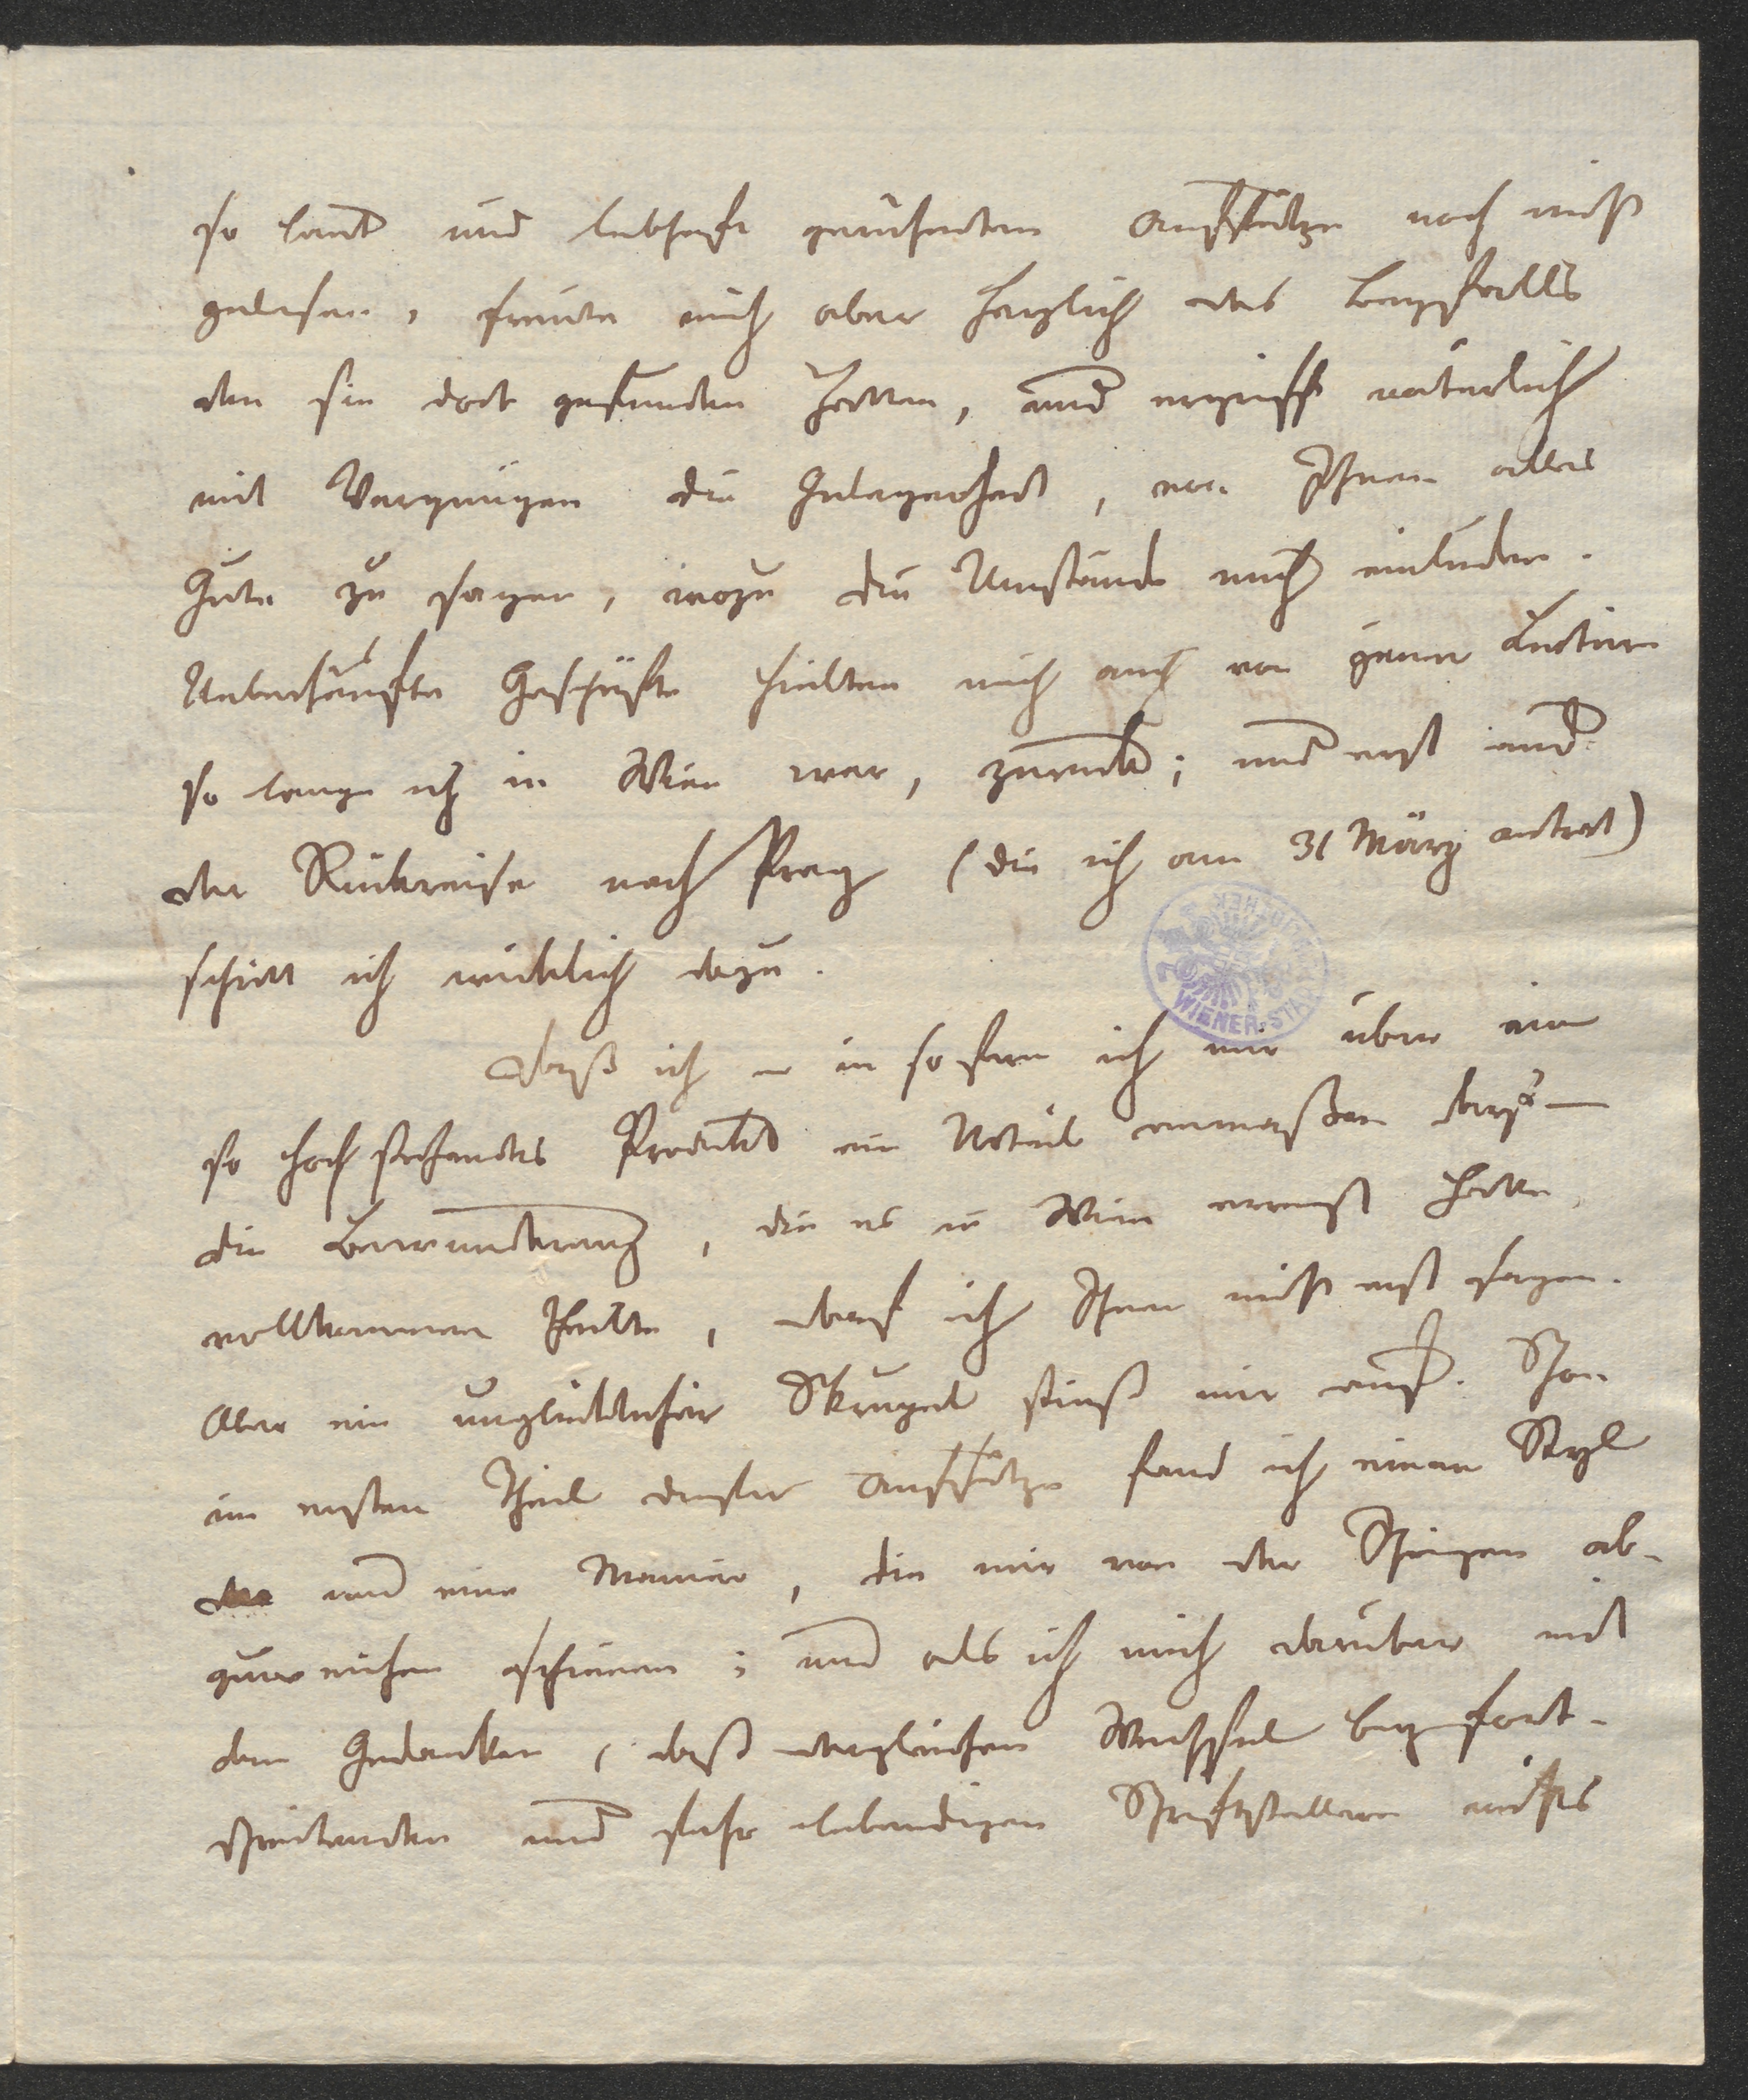 so laut und lebhaft gerühmten Aufsätze noch nicht
gelesen, freute mich aber herzlich des Beyfalls
den sie dort gefunden hatten, und ergriff natürlich
mit Vergnügen die Gelegenheit, von Ihnen alles
Gute zu sagen, wozu die Umstände mich einluden.
Ueberhäufte Geschäfte hielten mich auch von jener Lectüre
so lange ich in Wien war, zurück; und erst auf
der Rückreise nach Prag (die ich am 31 März antrat)
schritt ich wirklich dazu.
WIENER STADTBIBLIOTHEK
Daß ich – in so fern ich mir über ein
so hoch stehendes Produkt ein Urteil anmaßen darf –
die Bewunderung, die es in Wien erregt hatte,
vollkommen theilte, darf ich Ihnen nicht erst sagen.
Aber ein unglücklicher Skrupel stieß mir auf. Schon
im ersten Theil dieser Aufsätze fand ich einen Styl
und eine Manier, die mir von der Ihrigen ab-
zuweichen schienen; und als ich mich darüber mit
dem Gedanken, daß dergleichen Wechsel bey fort-
schreitenden und sehr lebendigen Schriftstellern nichts